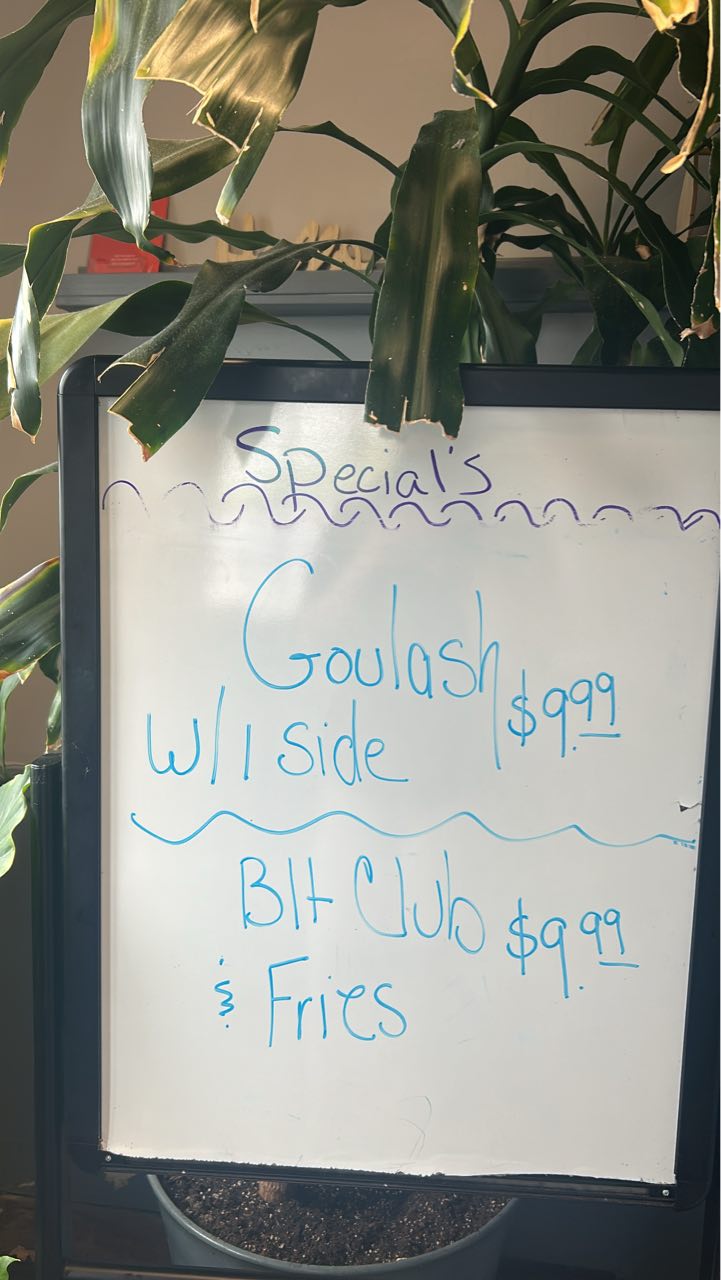 Special's
Goulash $9.99
w/1 side
Blt Club $9.99
& Fries